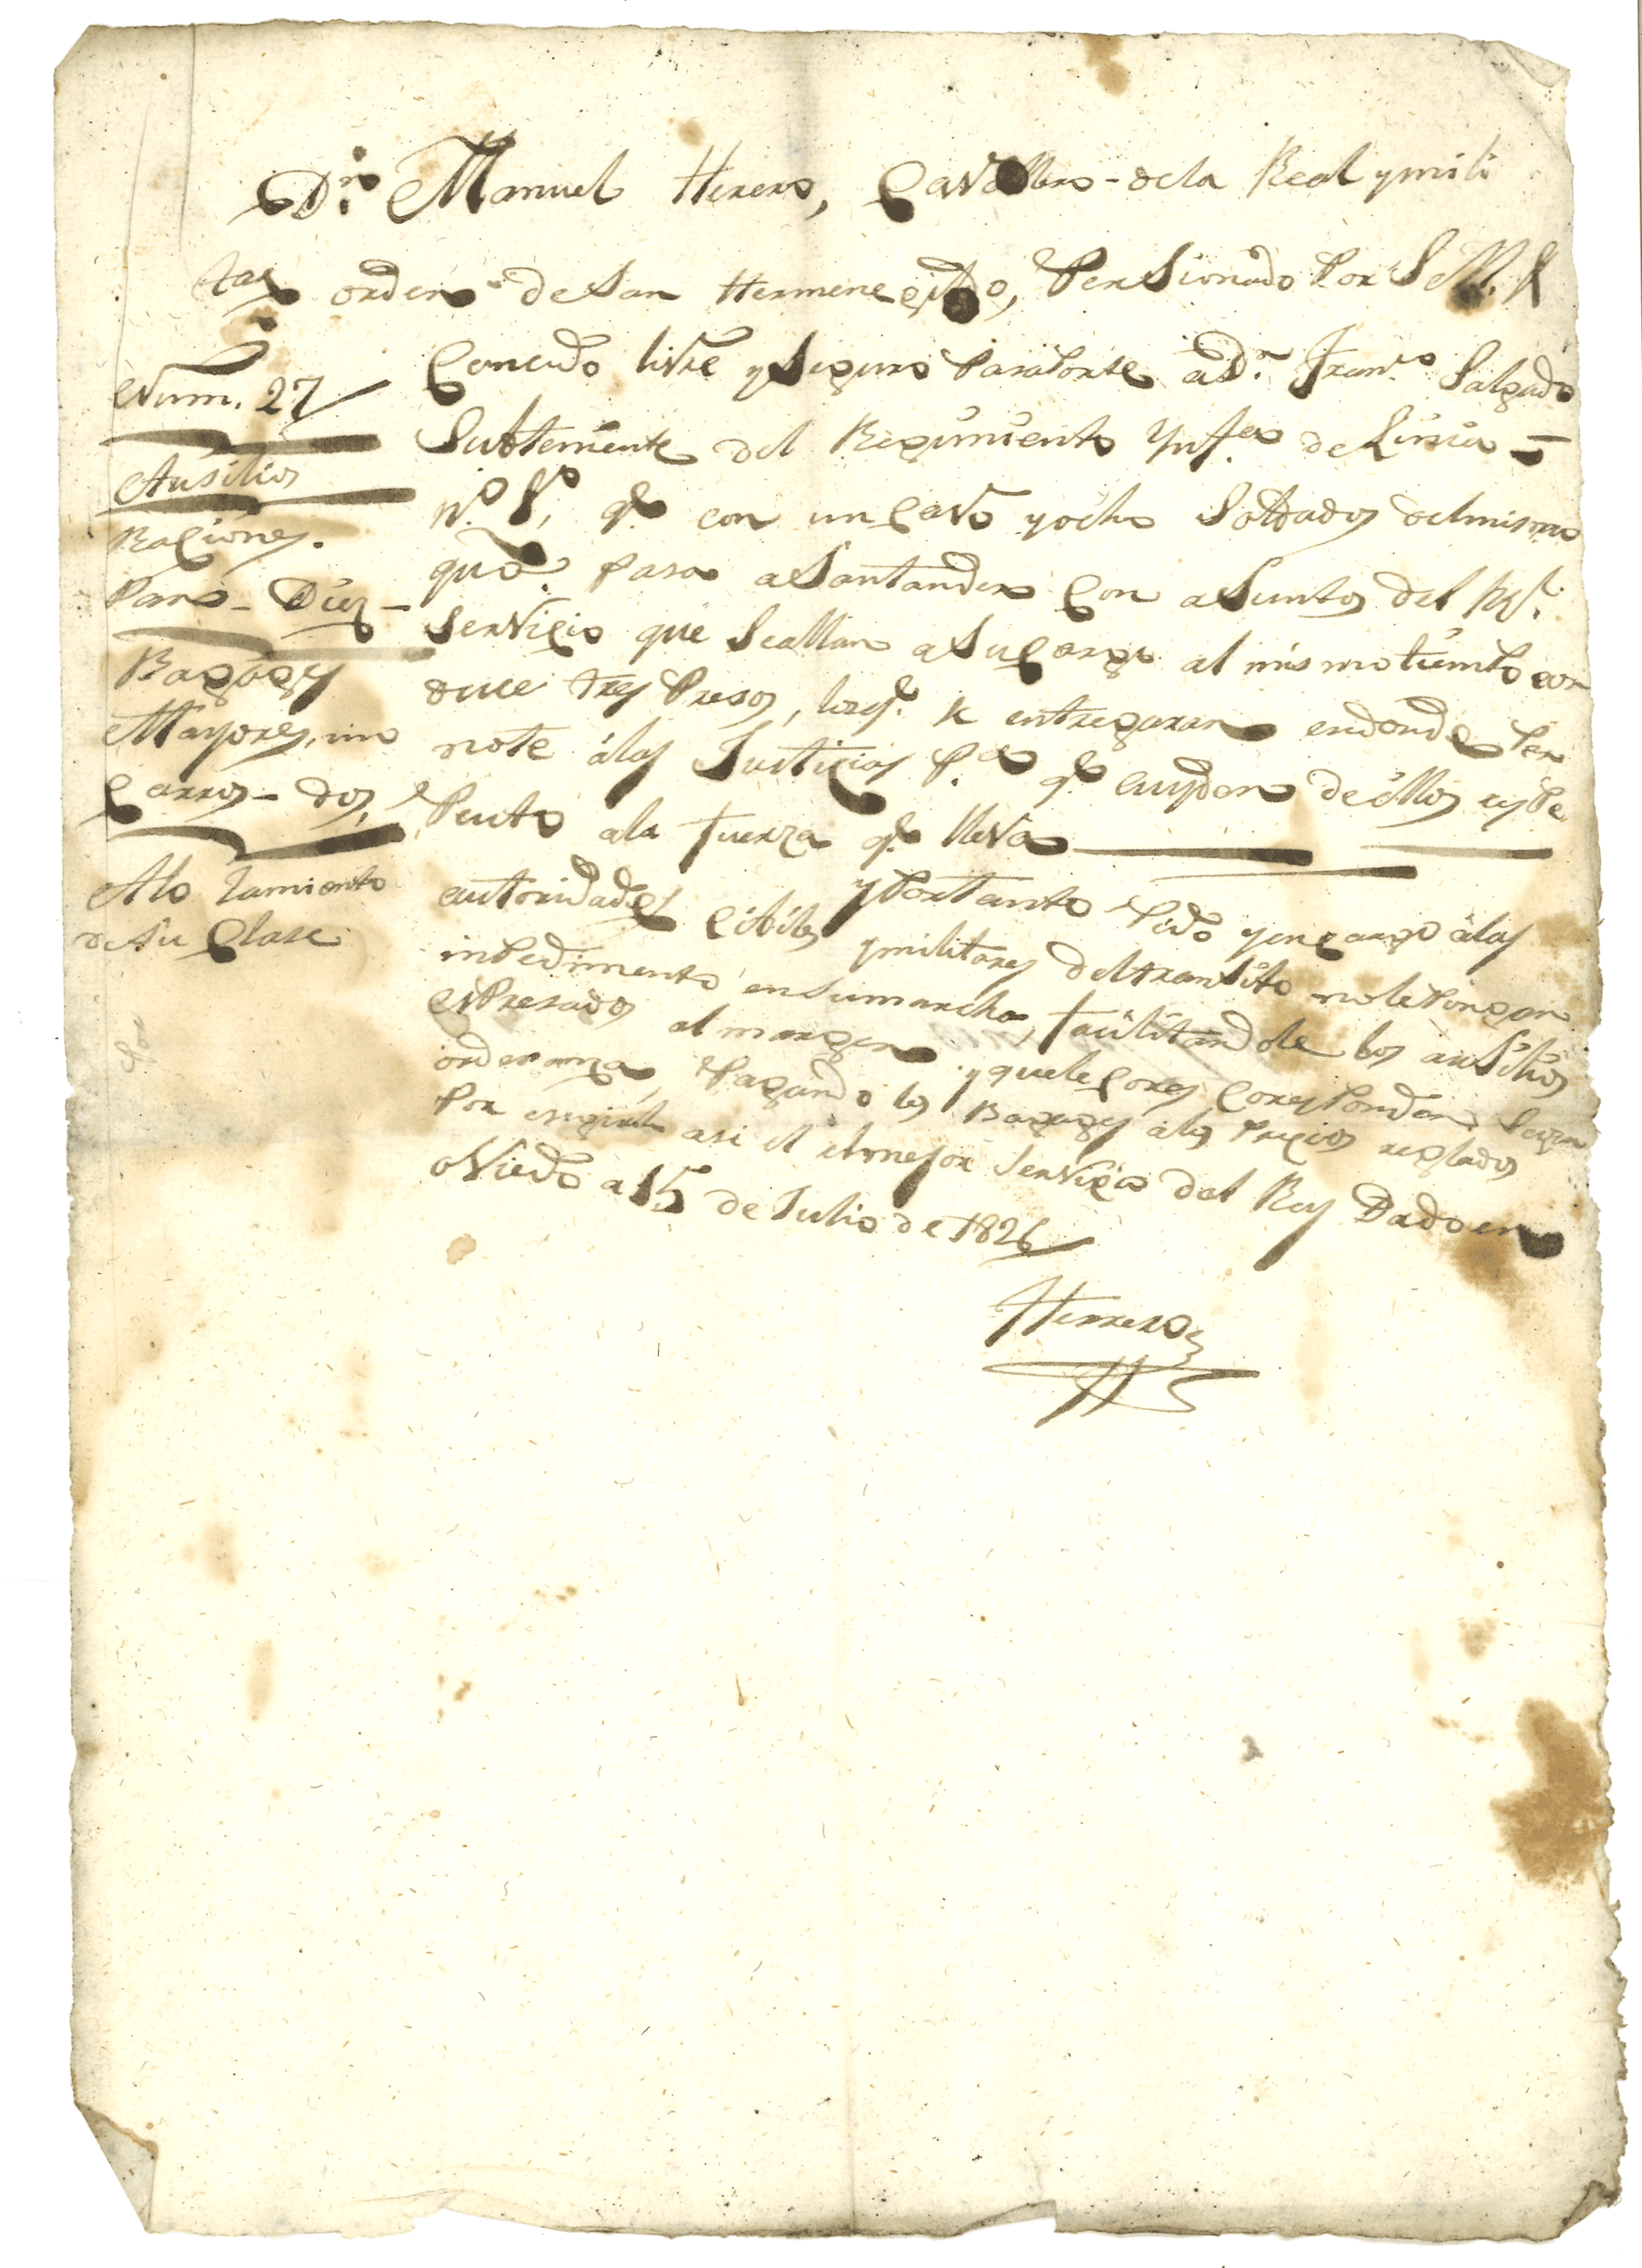 Dn. Manuel Herero, Cavallero de la Real y mili
tar orden de San Hermenegildo, Pensionado Por S. M. &
Num. 27
Ausilios
Raciones.
Pan - Diez -
Bagages
Mayores, uno
Carros - dos,
Alo Jamiento
de Su Clase
Concedo livre y Seguro Pasaporte a Dn. Franco. Salgado
Subteniente del Regimiento Ynfa. de Linia =
No. 8, qe. con un Cavo y ocho Soldados del mismo
que pasa a Santander Con aSuntos del Rl.
Servicio que Se allan a Su Cargo al mismo tiempo con
duce tres Presos, los qe. se entregaran en donde Per
note á las Justicias Pa. qe. cuyden de éllos respe
Puesto a la fuerza qe. lleva
y Portanto Pido y encargo á las
autoridades Cibiles y militares del transito no le Pongan
inpedimento en Su marcha, facilitandole los auSilios
esPresados al margen y que le Corres Corresponden Segun
ordenanza, Pagando los Bagages a los Precios reglados
Por esigirlo asi el mejor Servicio del Rey Dado en
oviedo a 15 de Julio de 1826
Herrero